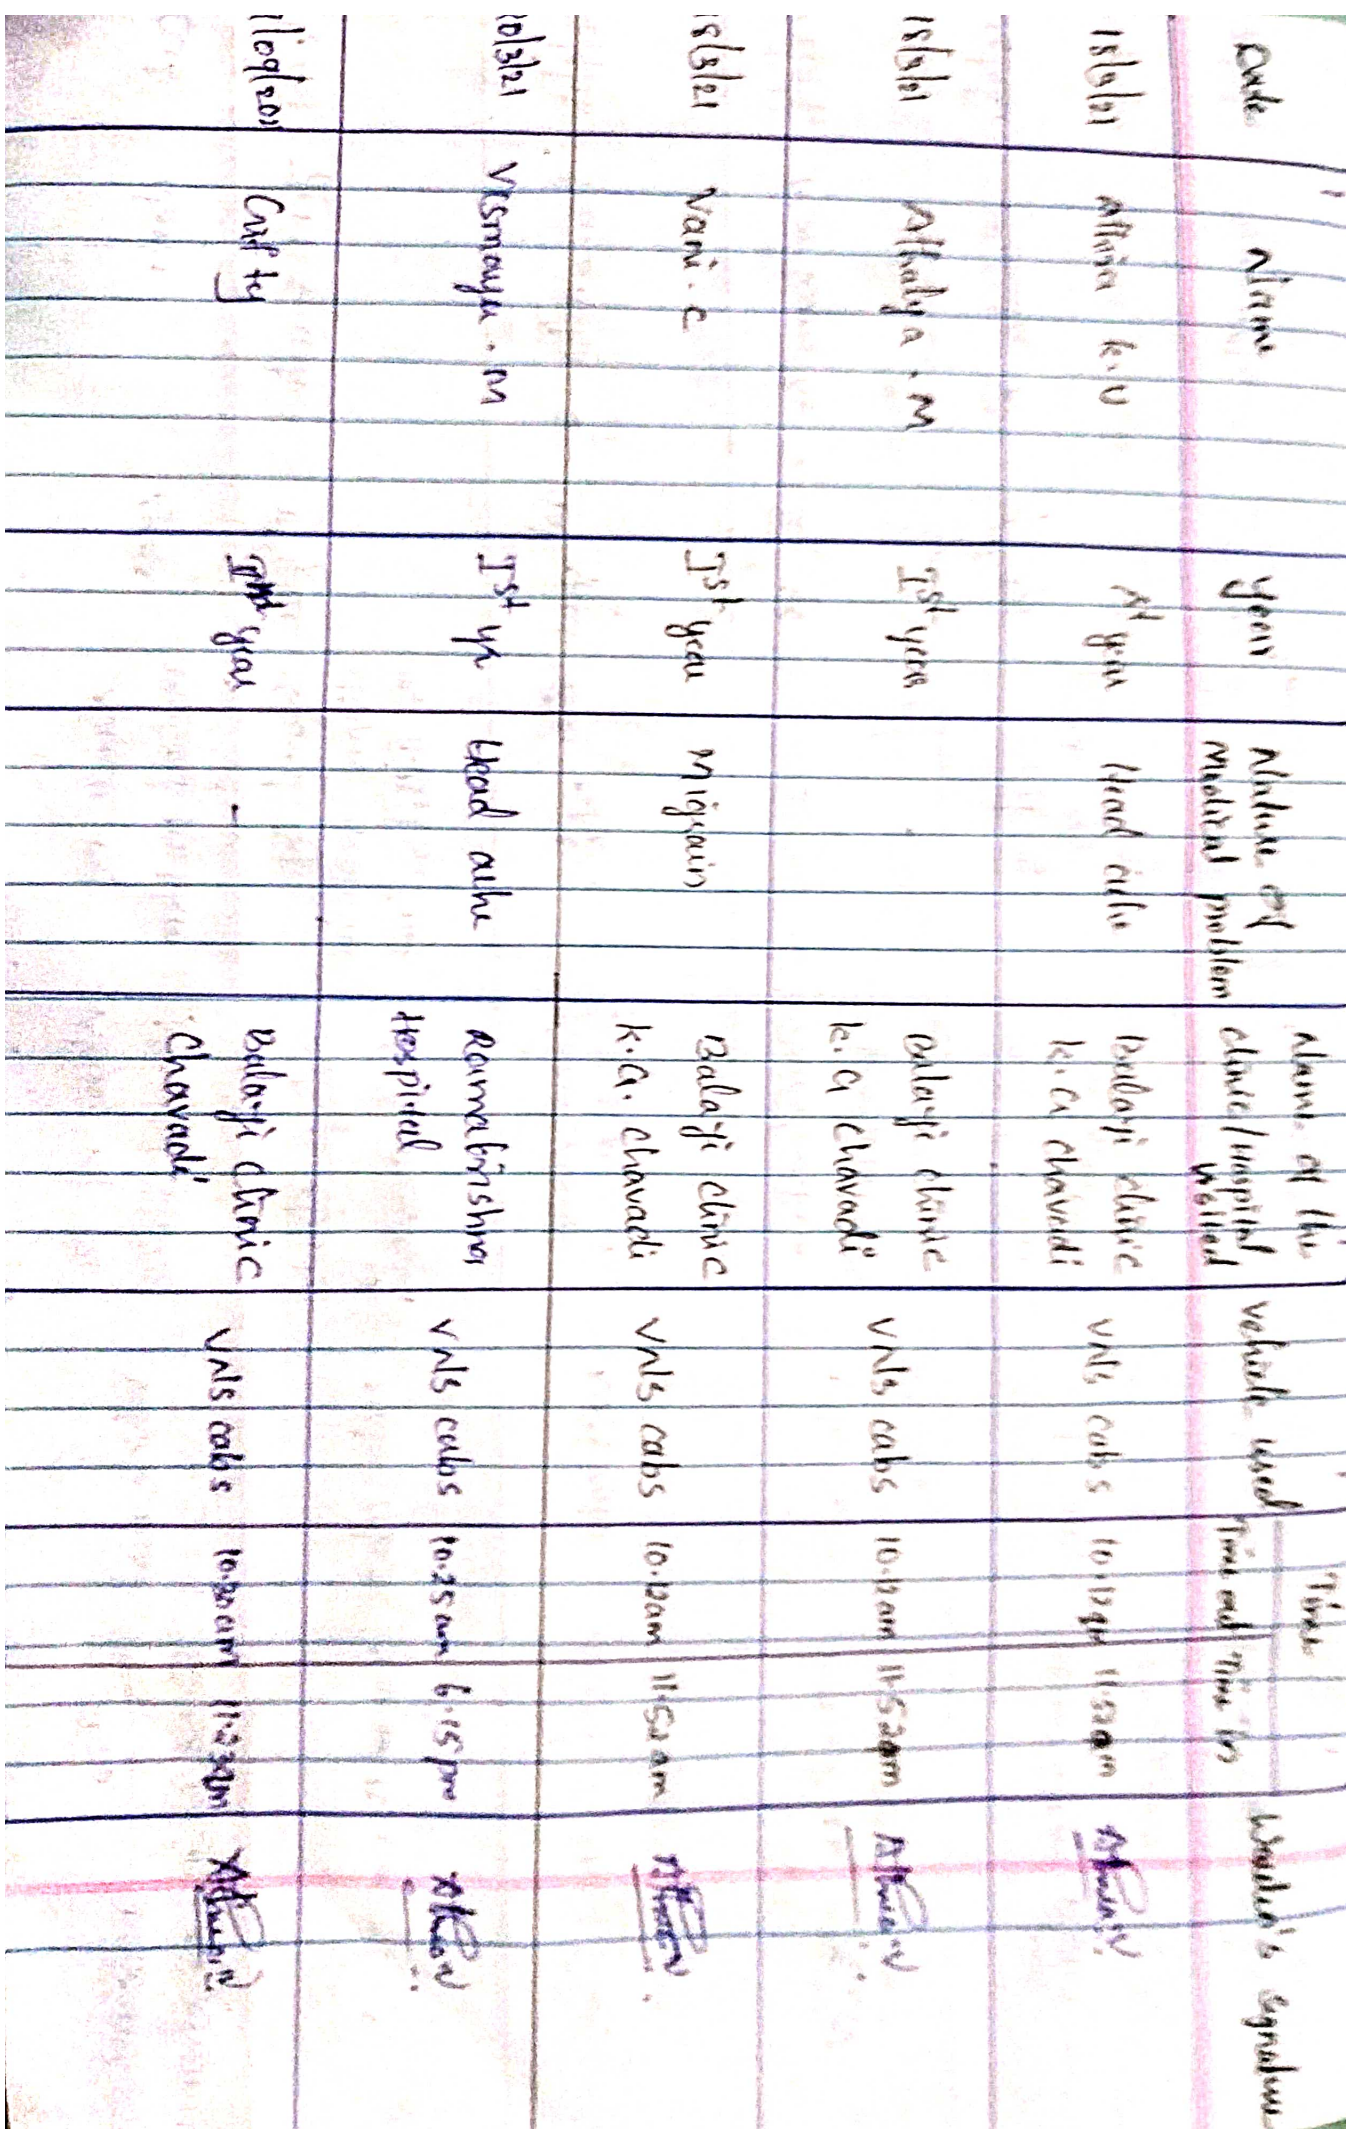 Date Name Year Nature of Medical problem Name of the clinic/Hospital visited Vehicle used Time Time out Time in Warden's signature
18/3/21 K.V Ist year Head ache Balaji clinic K.G chavadi VNS cabs 10.12am 11.52am
18/3/21 Athulya . M Ist year Balaji clinic K.G chavadi VNS cabs 10.12am 11.52am
18/3/21 Vani . C Ist year Migrain Balaji clinic K.G. chavadi VNS cabs 10.12am 11.52am
0/3/21 Vismaya . M Ist yr Head ache Ramakrishna Hospital VNS cabs 10.25am 6.15pm
year - Balaji clinic Chavadi VNS cabs